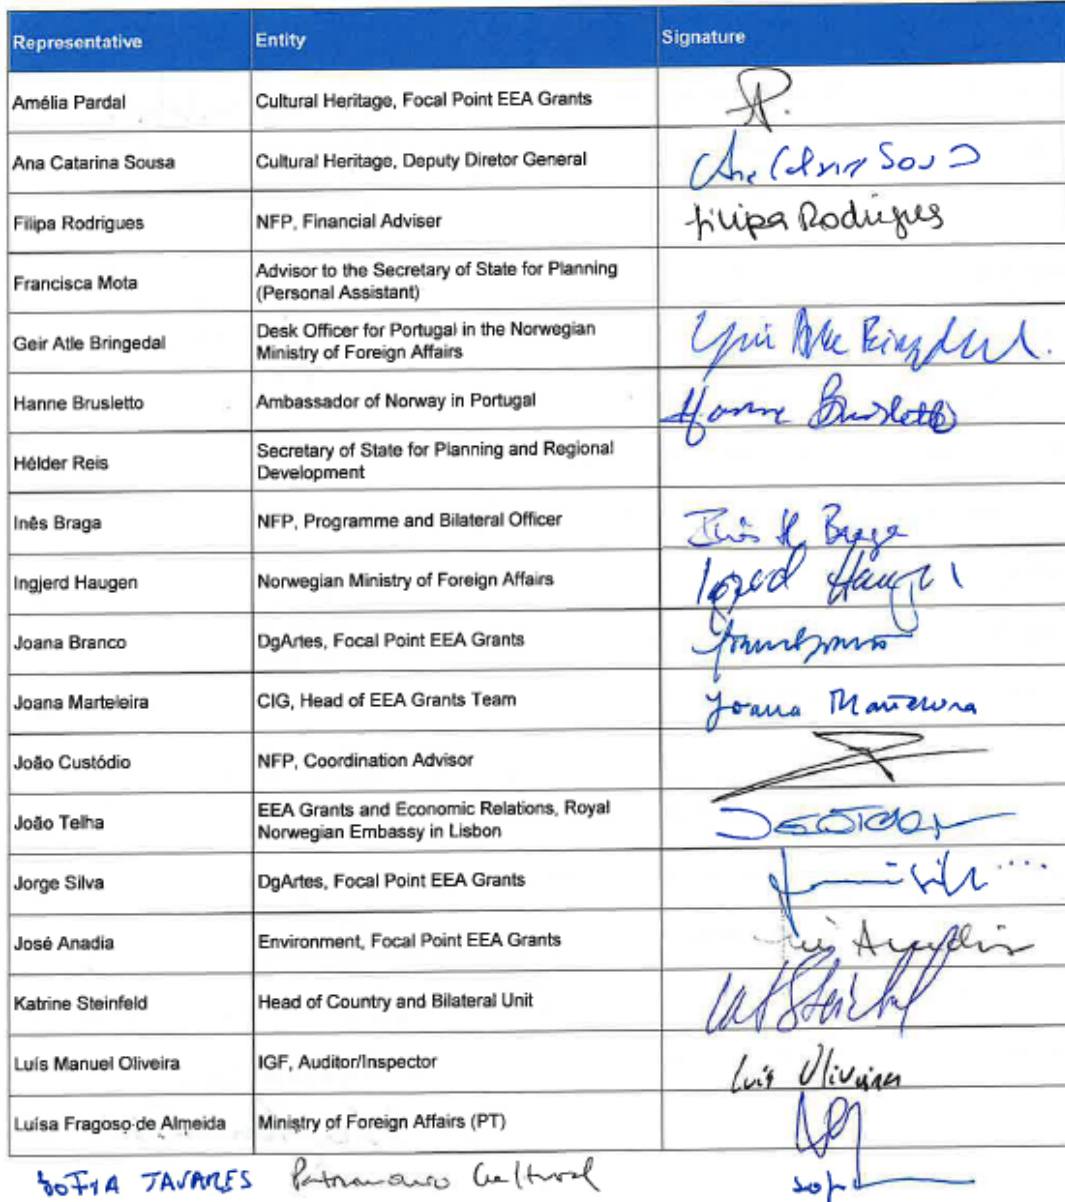 Representative Entity Signature
Amélia Pardal Cultural Heritage, Focal Point EEA Grants
Ana Catarina Sousa Cultural Heritage, Deputy Diretor General
Filipa Rodrigues NFP, Financial Adviser Filipa Rodrigues
Francisca Mota Advisor to the Secretary of State for Planning
(Personal Assistant)
Geir Atle Bringedal Desk Officer for Portugal in the Norwegian Geir Atle Bringedal
Ministry of Foreign Affairs
Hanne Brusletto Ambassador of Norway in Portugal Hanne Brusletto
Hélder Reis Secretary of State for Planning and Regional
Development
Inês Braga NFP, Programme and Bilateral Officer Inês Braga
Ingjerd Haugen Norwegian Ministry of Foreign Affairs
Joana Branco DgArtes, Focal Point EEA Grants
Joana Marteleira CIG, Head of EEA Grants Team Joana Marteleira
João Custódio NFP, Coordination Advisor
João Telha EEA Grants and Economic Relations, Royal
Norwegian Embassy in Lisbon
Jorge Silva DgArtes, Focal Point EEA Grants
José Anadia Environment, Focal Point EEA Grants
Katrine Steinfeld Head of Country and Bilateral Unit
Luís Manuel Oliveira IGF, Auditor/Inspector Luís Oliveira
Luísa Fragoso de Almeida Ministry of Foreign Affairs (PT)
SOFIA TAVARES Património Cultural